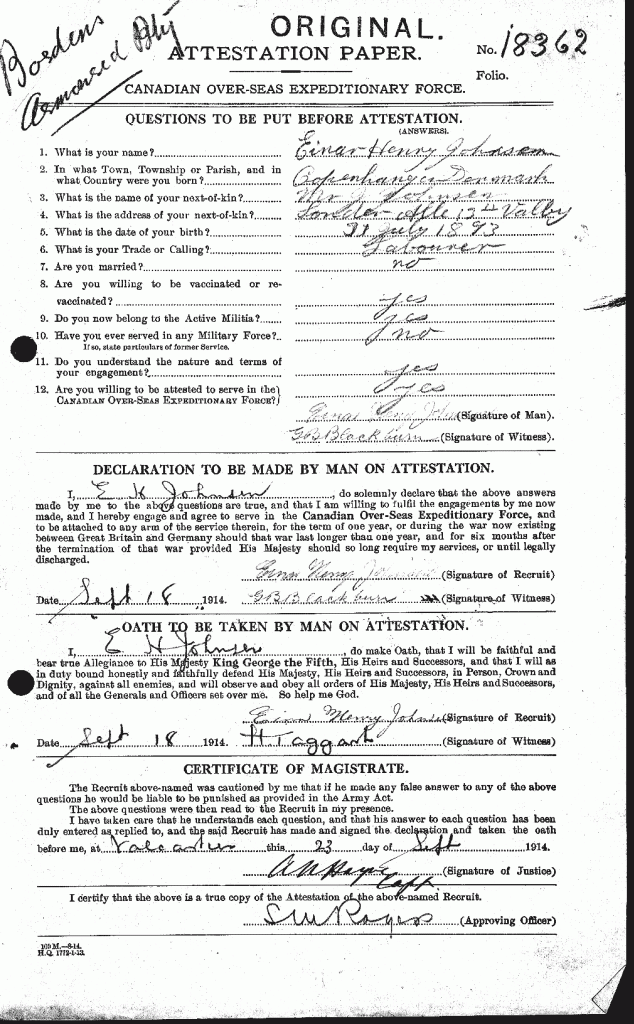 Bordens
Armoured Bty
ORIGINAL.
ATTESTATION PAPER.
No. 18362
Folio.
CANADIAN OVER-SEAS EXPEDITIONARY FORCE.
QUESTIONS TO BE PUT BEFORE ATTESTATION.
(ANSWERS).
1. What is your name? Einar Henry Johnsen
2. In what Town, Township or Parish, and in
what Country were you born? Copenhangen Denmark
3. What is the name of your next-of-kin? Mr J. Johnsen
4. What is the address of your next-of-kin? Sonder Alle 13 Valby
5. What is the date of your birth? July 1893
6. What is your Trade or Calling? Labourer
7. Are you married? no
8. Are you willing to be vaccinated or re-
vaccinated? yes
9. Do you now belong to the Active Militia? yes
10. Have you ever served in any Military Force? no
If so, state particulars of former Service.
11. Do you understand the nature and terms of
your engagement? yes
12. Are you willing to be attested to serve in the
CANADIAN OVER-SEAS EXPEDITIONARY FORCE? yes
Einar Henry Johnsen (Signature of Man).
G B Blackburn (Signature of Witness).
DECLARATION TO BE MADE BY MAN ON ATTESTATION.
I, E H Johnsen, do solemnly declare that the above answers
made by me to the above questions are true, and that I am willing to fulfil the engagements by me now
made, and I hereby engage and agree to serve in the Canadian Over-Seas Expeditionary Force, and
to be attached to any arm of the service therein, for the term of one year, or during the war now existing
between Great Britain and Germany should that war last longer than one year, and for six months after
the termination of that war provided His Majesty should so long require my services, or until legally
discharged.
Einar Henry Johnsen (Signature of Recruit)
Date Sept 18 1914. G B Blackburn (Signature of Witness)
OATH TO BE TAKEN BY MAN ON ATTESTATION.
I, E H Johnsen, do make Oath, that I will be faithful and
bear true Allegiance to His Majesty King George the Fifth, His Heirs and Successors, and that I will as
in duty bound honestly and faithfully defend His Majesty, His Heirs and Successors, in Person, Crown and
Dignity, against all enemies, and will observe and obey all orders of His Majesty, His Heirs and Successors,
and of all the Generals and Officers set over me. So help me God.
Einar Henry Johnsen (Signature of Recruit)
Date Sept 18 1914. H Taggart (Signature of Witness)
CERTIFICATE OF MAGISTRATE.
The Recruit above-named was cautioned by me that if he made any false answer to any of the above
questions he would be liable to be punished as provided in the Army Act.
The above questions were then read to the Recruit in my presence.
I have taken care that he understands each question, and that his answer to each question has been
duly entered as replied to, and the said Recruit has made and signed the declaration and taken the oath
before me, at Valcartier this 23 day of Sept 1914.
Capt. (Signature of Justice)
I certify that the above is a true copy of the Attestation of the above-named Recruit.
(Approving Officer)
100 M.—8-14.
H.Q. 1772-1-13.